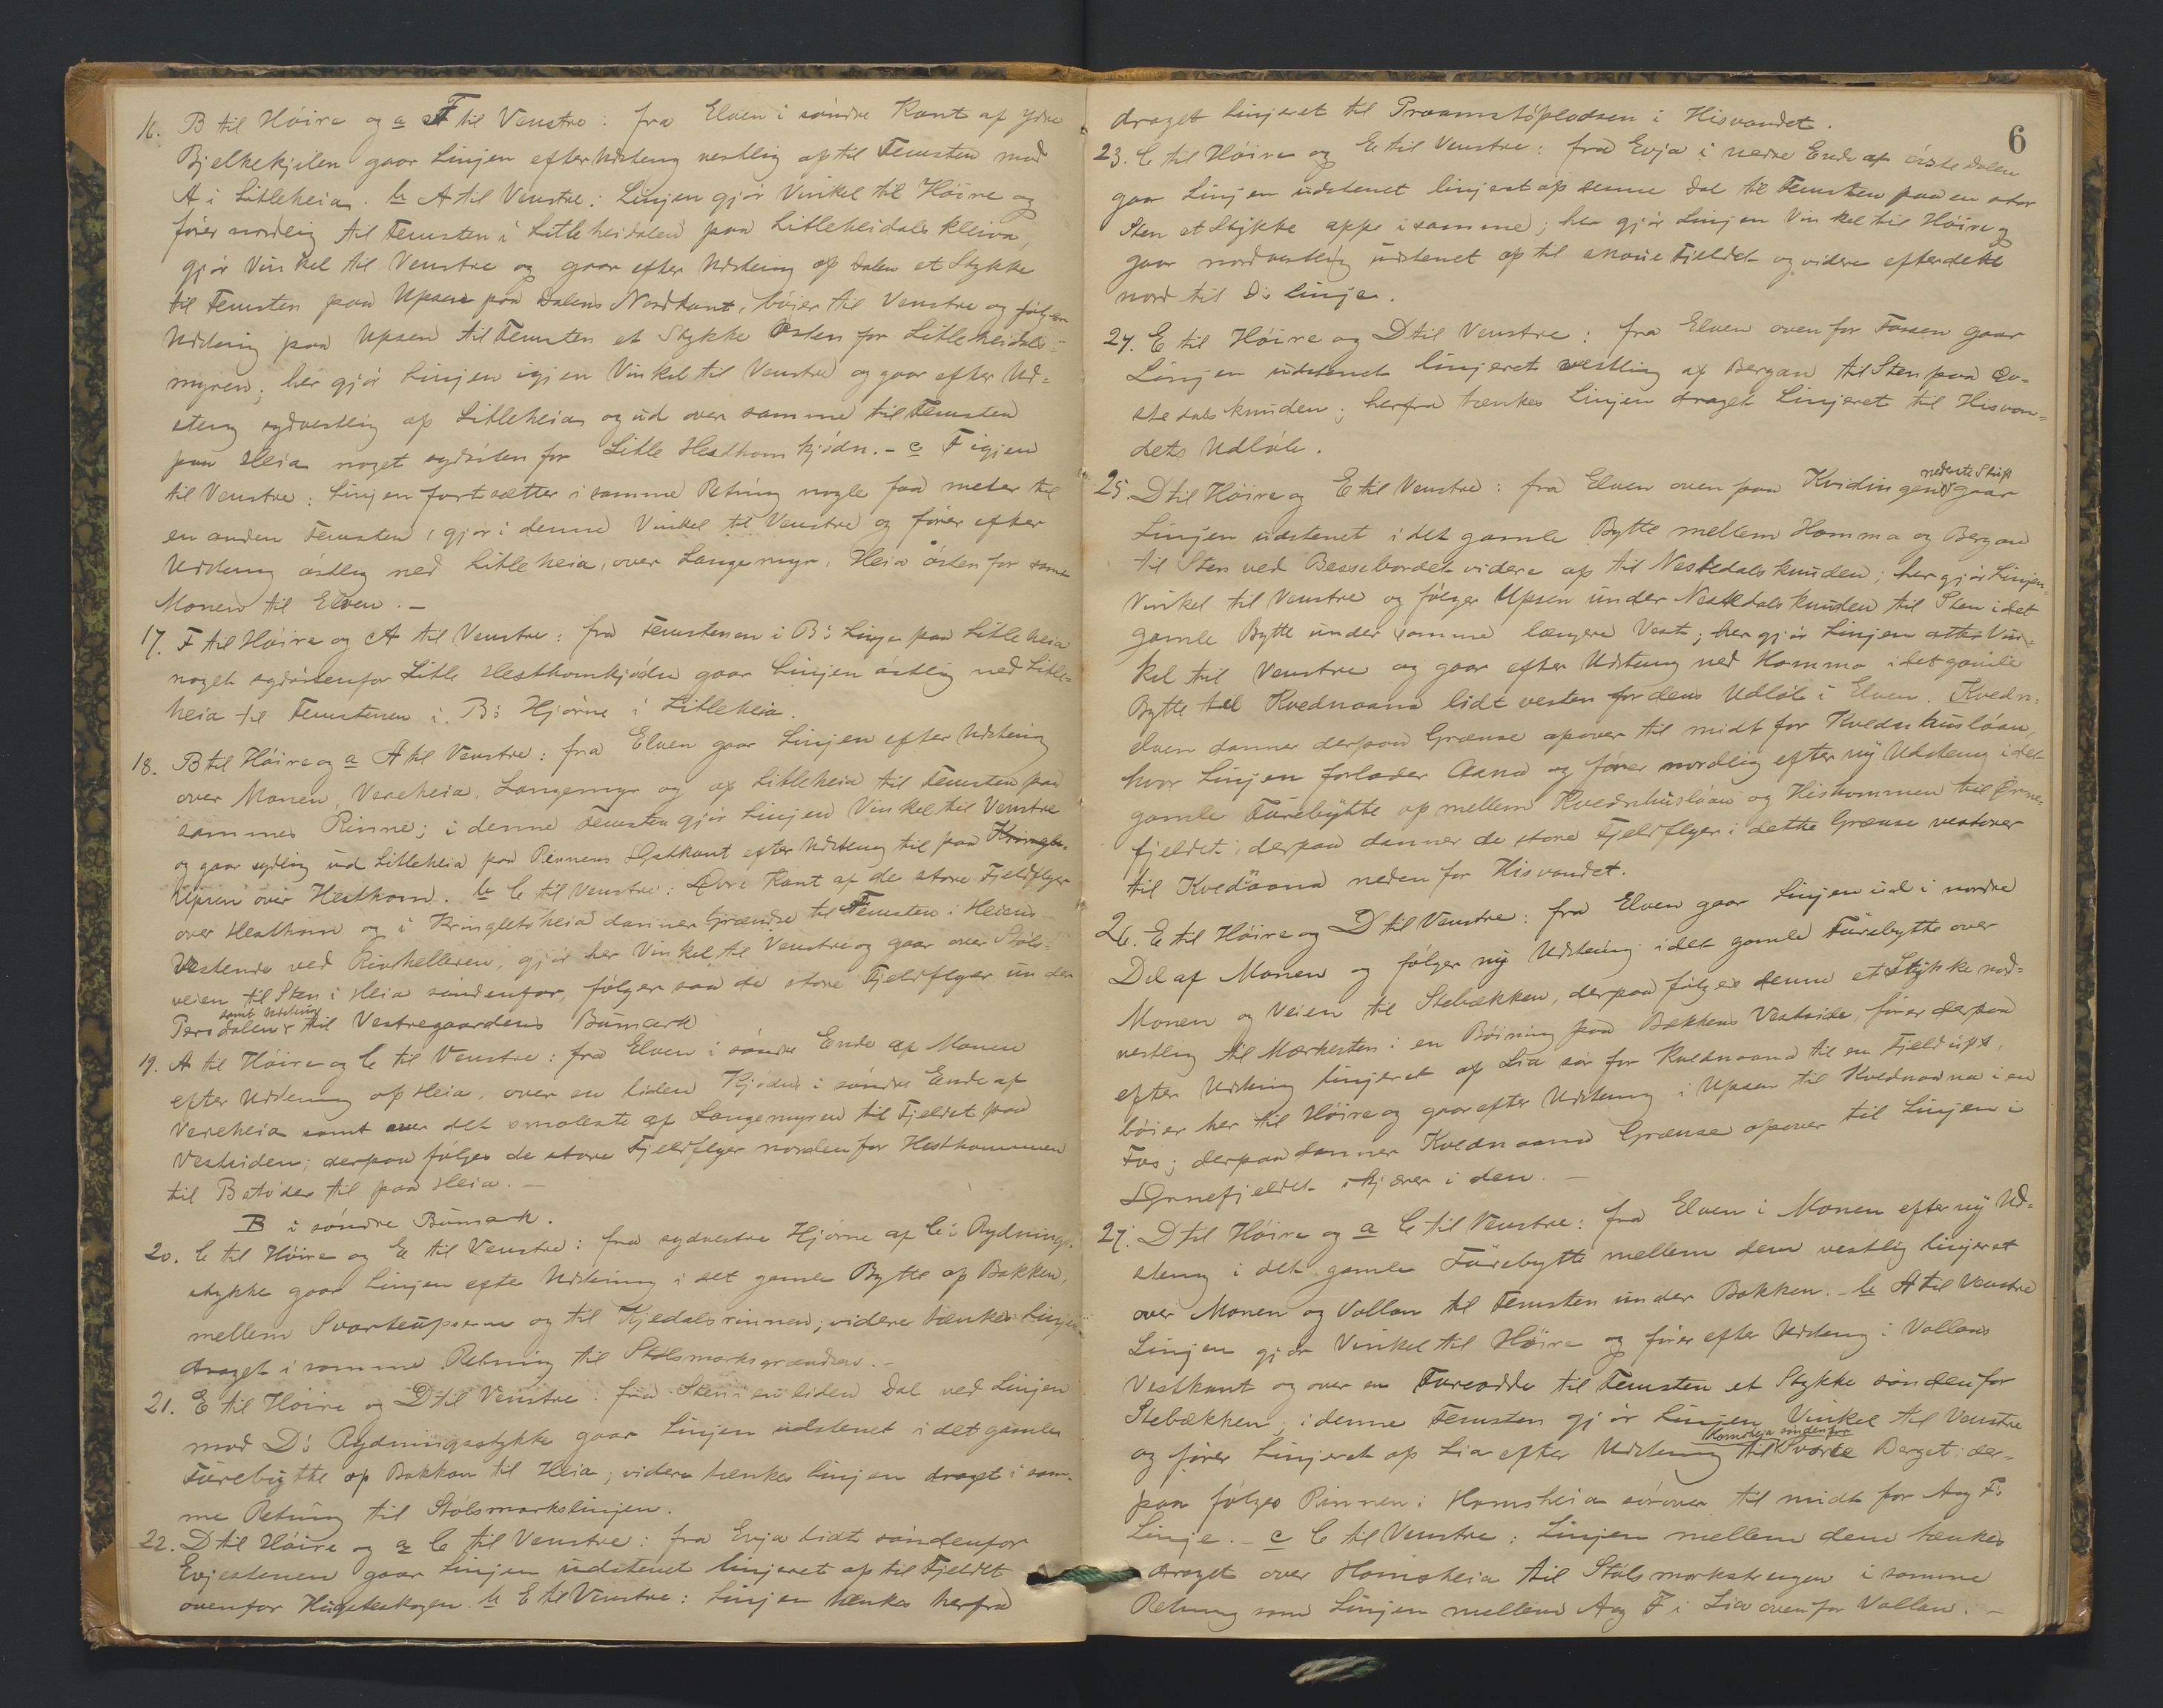 16. B til Höire og a F til Venstre: fra Elven i söndre Kant af ydre
Bjelkekjilen gaar Linjen efter Udstening vestlig op til Femsten mod
A i Litleheia. b A til Venstre: Linjen gjör Vinkel til Höire og
förer nordlig til Femsten i Litleheidalen paa Litleheidalskleiva,
gjör Vinkel til Venstre og gaar efter Udstening op Dalen et Stykke
til Femsten paa Upsen paa Dalens Nordkant, böier til Venstre og fölger
Udstening paa Upsen til Femsten et Stykke Östen for Litleheidals-
myren; her gjör Linjen igjen Vinkel til Venstre og gaar efter Ud-
stening sydvestlig op Litleheia og ud over samme til Femsten
paa Heia noget sydösten for Litle Hesthomkjödn. - c F igjen
til Venstre: Linjen fortsætter i samme Retning nogle faa meter til
en anden Femsten, gjör i denne Vinkel til Venstre og förer efter
Udstening östlig ned Litleheia, over Langemyr, Heia östen for samt
Monen til Elven. -
17. F til Höire og A til Venstre: fra Femstenen i B's Linje paa Litleheia
noget sydöstenfor Litle Hesthomkjödn gaar Linjen östlig ned Litle-
heia til Femstenen i B's Hjörne i Litleheia.
18. B til Höire og a A til Venstre: fra Elven gaar Linjen efter Udstening
over Monen, Vereheia, Langemyr og op Litleheia til Femsten paa
sammes Rinne; i denne Femsten gjör Linjen Vinkel til Venstre
og gaar sydlig ud Litleheia paa Rinnens Östkant efter Udstening til paa
Upsen over Hesthom. b C til Venstre: Övre Kant af de store Fjeldflyer
over Hesthom og i Kringletsheia danner Grændse til Femsten i Heiens
Vestende ved Rivhelleren, gjör her Vinkel til Venstre og gaar over Stöls-
veien til Sten i Heia söndenfor, fölger saa de store Fjeldflyer under
samt Udstening
Persdalen til Vestregaardens Bumark
19. A til Höire og C til Venstre: fra Elven i söndre Ende af Monen
efter Udstening op Heia, over en liden Kjödn i söndre Ende af
Vereheia samt over det smaleste af Langemyren til Fjeldet paa
Vestsiden; derpaa fölges de store Fjeldflyer norden for Hesthommen
til Betoder til paa Heia. -
B i söndre Bumark.
20. C til Höire og E til Venstre: fra sydvestre Hjörne af C's Rydnings-
stykke gaar Linjen efter Udstening i det gamle Bytte op Bakken,
mellem Svarteupserne og til Kjedalsrinnen; videre tænkes Linjen
draget i samme Retning til Stölsmarksgrændsen. -
21. E til Höire og D til Venstre: fra Sten i en liden Dal ved Linjen
mod D's Rydningsstykke gaar Linjen udstenet i det gamle
Furebytte op Bakkan til Heia; videre tænkes linjen draget i sam-
me Retning til Stölsmarkslinjen.
22. D til Höire og a C til Venstre: fra Evja lidt söndenfor
Evjestenen gaar Linjen udstenet linjeret op til Fjeldet
ovenfor b E til Venstre: Linjen tænkes herfra
6
draget linjeret til Praamstöpladsen i Hisvandet.
23. C til Höire og E til Venstre: fra Evja i nedre Ende af
gaar Linjen udstenet linjeret op denne Dal til Femsten paa en stor
Sten et Stykke oppe i samme; her gjör Linjen Vinkel til Höire og
gaar nordvestlig udstenet op til snaue Fjeldet og videre efter dette
nord til D's linje.
24. E til Höire og D til Venstre: fra Elven ovenfor Fossen gaar
Linjen udstenet linjeret vestlig op Bergan til Sten paa Öv-
stedalsknuden; herfra tænkes Linjen draget Linjeret til Hisvan-
dets Udlöb.
25. D til Höire og E til Venstre: fra Elven oven paa Kvidingens nederste Skift gaar
Linjen udstenet i det gamle Bytte mellem Homma og Bergan
til Sten ved Bessebordet videre op til Nestedalsknuden; her gjör Linjen
Vinkel til Venstre og fölger Upsen under Nestedalsknuden til Sten i det
gamle Bytte under samme længere Vest; her gjör Linjen atter Vin-
kel til Venstre og gaar efter Udstening ned Homma i det gamle
Bytte til Kvednaana lidt vesten for dens Udlöb i Elven. Kvedn-
elven danner derpaa Grænse opover til midt for Kvednhuslöau,
hvor Linjen forlader Aana og förer nordlig efter ny Udstening i det
gamle Furebytte op mellem Kvednhuslöau og Hishommen til Örne-
fjeldet; derpaa danner de store Fjeldflyer i dette Grænse vestover
til Kvednaana neden for Hisvandet.
26. E til Höire og D til Venstre: fra Elven gaar Linjen ud i nordre
Del af Monen og fölger ny Udstening i det gamle Furebytte over
Monen og Veien til Stebækken, derpaa fölges denne et Stykke nord-
vestlig til Mærkesten i en Böining paa Bækkens Vestside, förer derpaa
efter Udstening linjeret op Lia sör for Kvednaana til en Fjeldups,
böier her til Höire og gaar efter Udstening i Upsen til Kvednaana i en
Fos; derpaa danner Kvednaana Grænse opover til Linjen i
Örnefjeldet skjærer i den. -
27. D til Höire og a C til Venstre: fra Elven i Monen efter ny Ud-
stening i det gamle Furebytte mellem dem vestlig linjeret
over Monen og Vollan til Femsten under Bakken. - b A til Venstre
Linjen gjör Vinkel til Höire og förer efter Udstening i Vollans
Vestkant og over en Fureodde til Femsten et Stykke söndenfor
Stebækken; i denne Femsten gjör Linjen Vinkel til Venstre
Homsheia söndenfor
og förer Linjeret op Lia efter Udstening til Svarte Berget; der-
paa fölges Rinnen i Homsheia sörover til midt for A og F's
Linje. - c C til Venstre: Linjen mellem dem tænkes
draget over Homsheia til Stölsmarkstrengen i samme
Retning som Linjen mellem A og F i Lia ovenfor Vollan. -